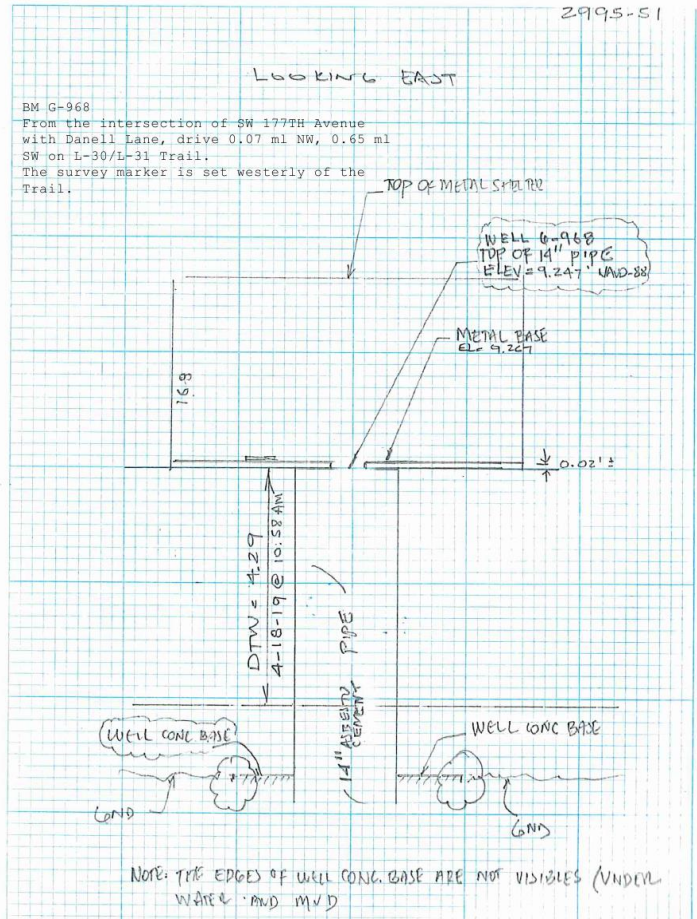 2995-51
LOOKING EAST
BM G-968
From the intersection of SW 177TH Avenue
with Danell Lane, drive 0.07 ml NW, 0.65 ml
SW on L-30/L-31 Trail.
The survey marker is set westerly of the
Trail.
TOP OF METAL SHELTER
WELL G-968
TOP OF 14" PIPE
ELEV = 9.247' NAVD-88
METAL BASE
EL= 9.267
0.02' ±
DTW = 4.29
4-18-19 @ 10:58 AM
14" ASBESTO CEMENT PIPE
WELL CONC BASE
WELL CONC BASE
GND
GND
NOTE: THE EDGES OF WELL CONC. BASE ARE NOT VISIBLES (UNDER
WATER AND MUD